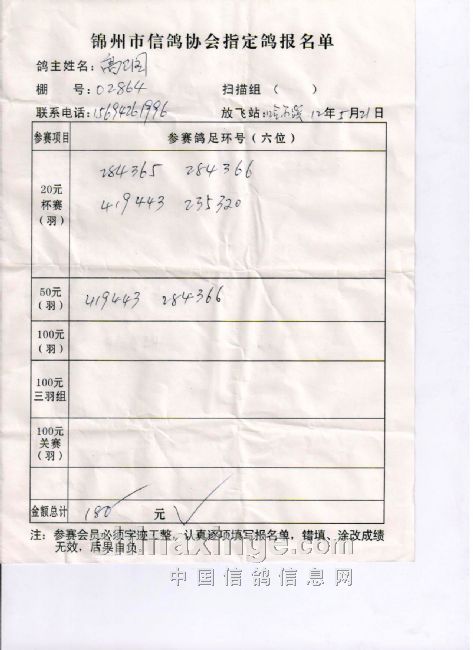 锦州市信鸽协会指定鸽报名单
鸽主姓名：
棚 号：02864 扫描组（ ）
联系电话：15694261996 放飞站：哈尔滨 12年5月21日
参赛项目 参赛鸽足环号（六位）
20元杯赛（羽） 284365 284366
419443 235320
50元（羽） 419443 284366
100元（羽）
100元三羽组
100元关赛（羽）
金额总计 180 元
注：参赛会员必须字迹工整。认真逐项填写报名单，错填、涂改成绩
无效，后果自负。
chinaxinge.com
中国信鸽信息网